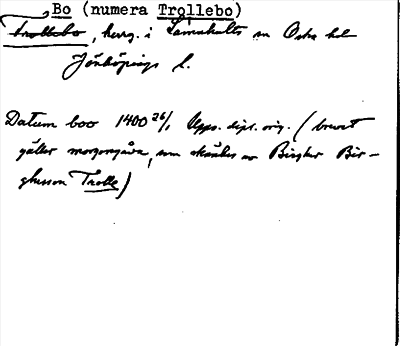 Bo (numera Trollebo)
Trollebo, herrg. i Lannaskulla sn Östra hd
Jönköpings l.
Datum boo 1400 26/1 Upps. dipl. orig. (brevet
gäller morgongåva, som skänkes av Birgher Bir-
ghersson Trolle)